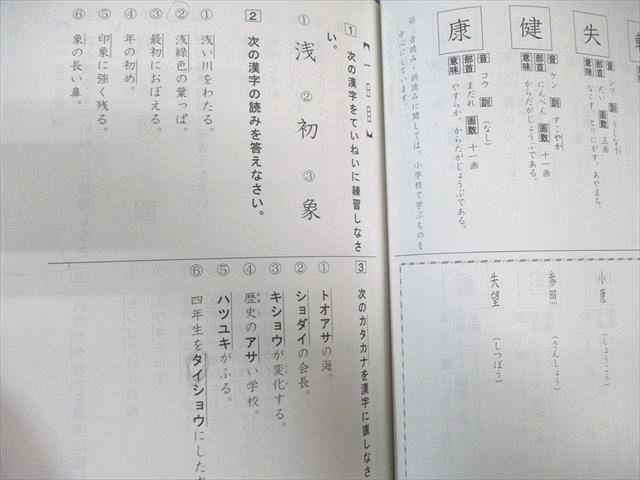 失
音 シツ 訓 うしなう
部首 だい 画数 五画
意味 なくす。とりにがす。あやまち。
健
音 ケン 訓 すこやか
部首 にんべん 画数 十一画
意味 からだがじょうぶである。
康
音 コウ 訓 (なし)
部首 まだれ 画数 十一画
意味 やすらか。からだがじょうぶである。
※ 音読み・訓読みに関しては、小学校で学ぶものを
中心にしています。
小康 (しょうこう)
参照 (さんしょう)
失望 (しつぼう)
【一日目】
1 次の漢字をていねいに練習しなさ
い。
① 浅 ② 初 ③ 象
2 次の漢字の読みを答えなさい。
① 浅い川をわたる。
② 浅緑色の葉っぱ。
③ 最初におぼえる。
④ 年の初め。
⑤ 印象に強く残る。
⑥ 象の長い鼻。
3 次のカタカナを漢字に直しなさ
① トオアサの海。
② ショダイの会長。
③ キショウが変化する。
④ 歴史のアサい学校。
⑤ ハツユキがふる。
⑥ 四年生をタイショウにした